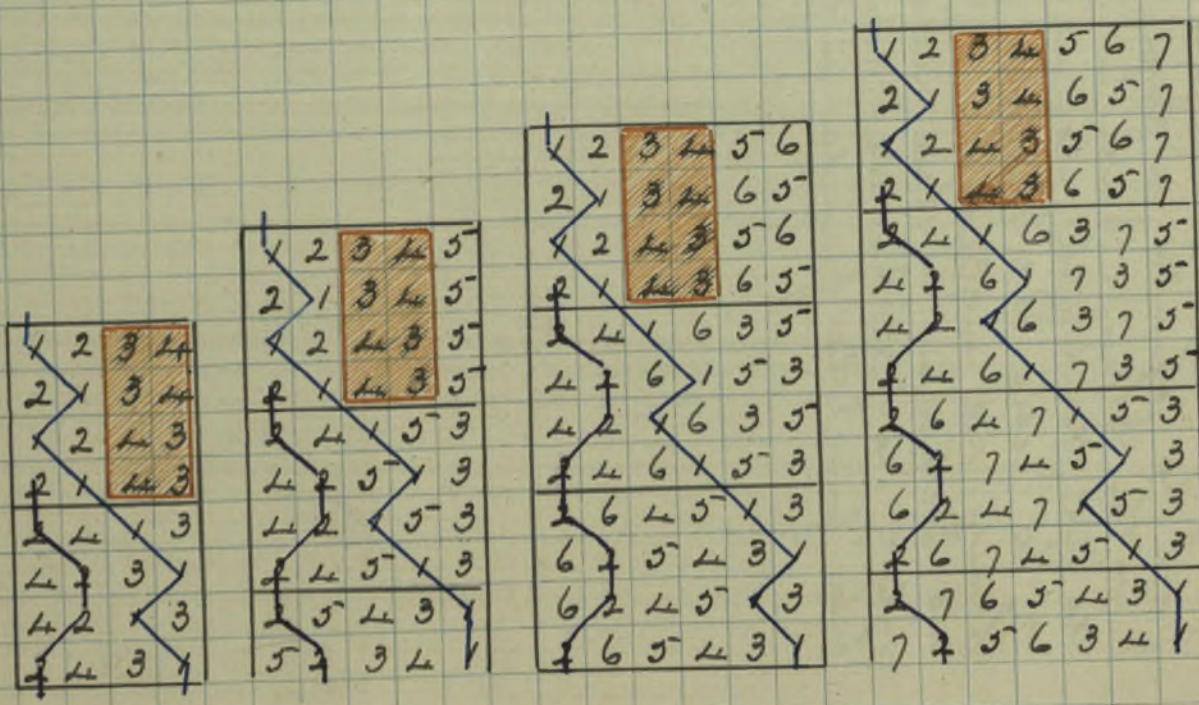 1 2 3 4
2 1 3 4
1 2 4 3
2 1 4 3
2 4 1 3
4 2 3 1
4 2 1 3
2 4 3 1
1 2 3 4 5
2 1 3 4 5
1 2 4 3 5
2 1 4 3 5
2 4 1 5 3
4 2 5 1 3
4 2 1 5 3
2 4 5 1 3
2 5 4 3 1
5 2 3 4 1
1 2 3 4 5 6
2 1 3 4 6 5
1 2 4 3 5 6
2 1 4 3 6 5
2 4 1 6 3 5
4 2 6 1 5 3
4 2 1 6 3 5
2 4 6 1 5 3
2 6 4 5 1 3
6 2 5 4 3 1
6 2 4 5 1 3
2 6 5 4 3 1
1 2 3 4 5 6 7
2 1 3 4 6 5 7
1 2 4 3 5 6 7
2 1 4 3 6 5 7
2 4 1 6 3 7 5
4 2 6 1 7 3 5
4 2 1 6 3 7 5
2 4 6 1 7 3 5
2 6 4 7 1 5 3
6 2 7 4 5 1 3
6 2 4 7 1 5 3
2 6 7 4 5 1 3
2 7 6 5 4 3 1
7 2 5 6 3 4 1